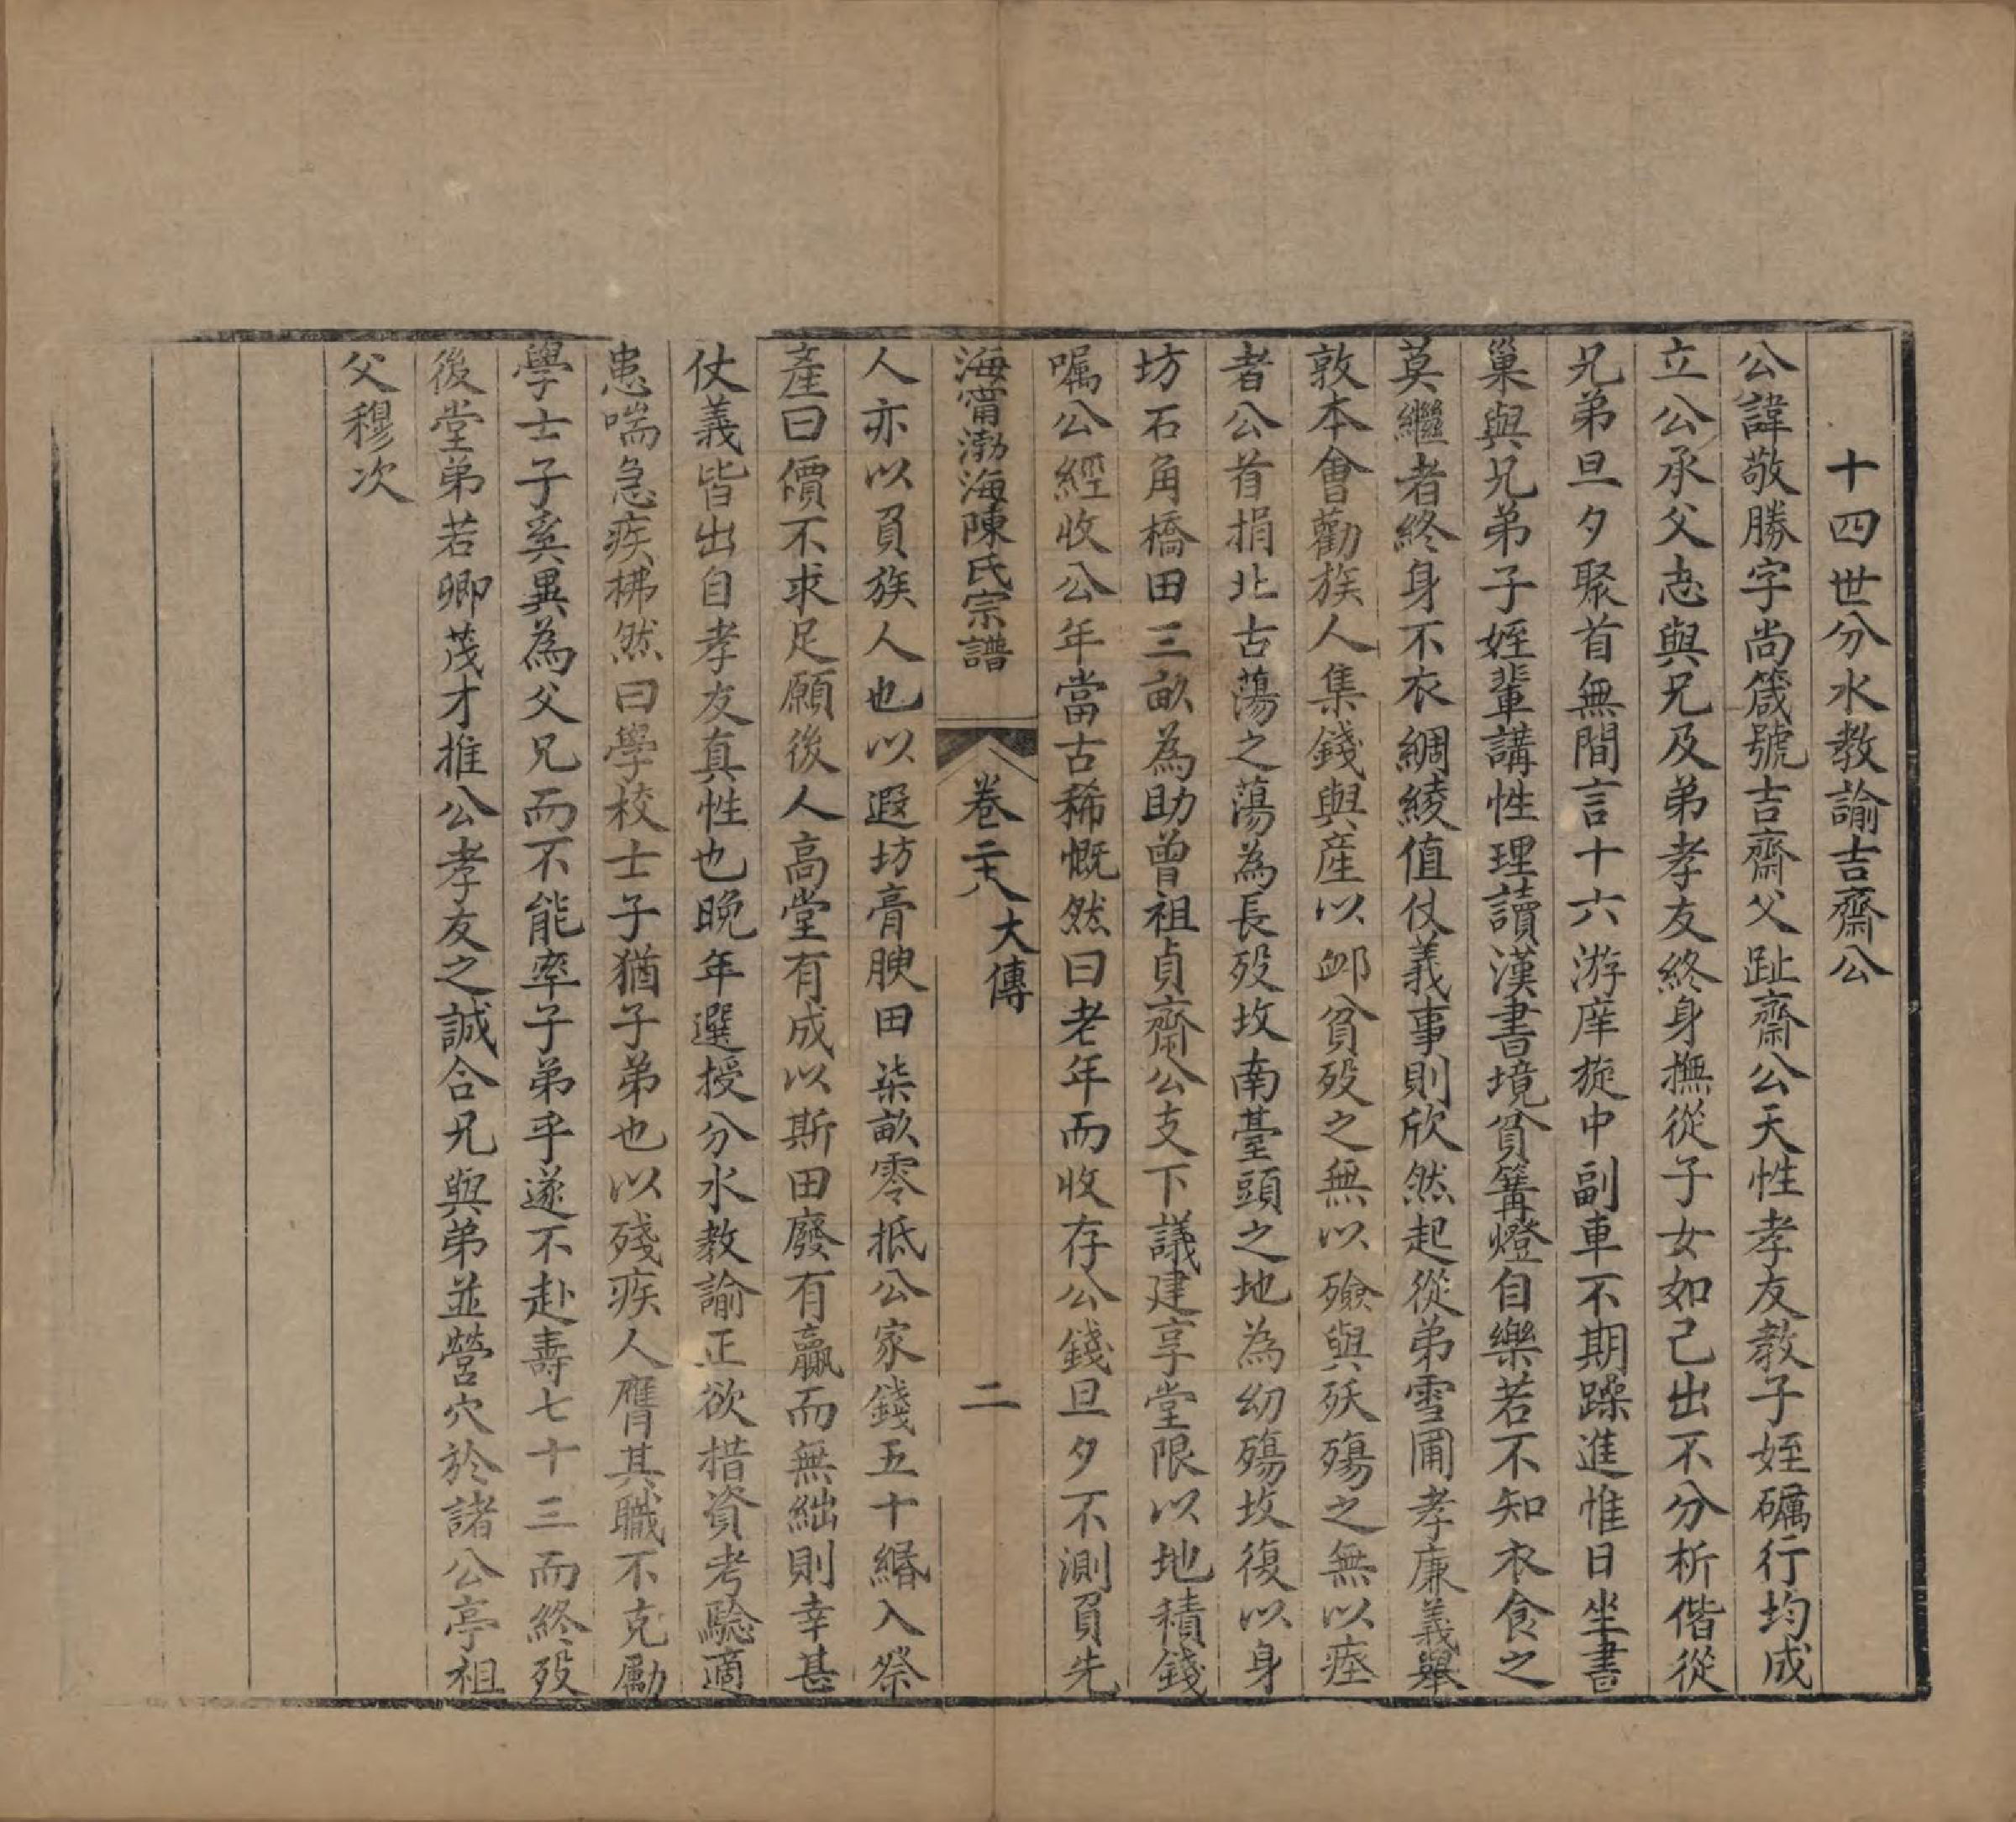 十四世分水教諭吉齋公
公諱敬勝字尚箴號吉齋父趾齋公天性孝友教子姪礪行均成
立公承父志與兄及弟孝友終身撫從子女如己出不分析偕從
兄弟旦夕聚首無間言十六游庠旋中副車不期躁進惟日坐書
巢與兄弟子姪輩講性理讀漢書境貧篝燈自樂若不知衣食之
莫繼者終身不衣綢綾值仗義事則欣然起從弟雪圃孝廉義舉
敦本會勸族人集錢與產以卹貧歿之無以殮與殀殤之無以瘞
者公首捐北古蕩之蕩為長歿坟南臺頭之地為幼殤坟復以身
坊石角橋田三畝為助曾祖貞齋公支下議建享堂限以地積錢
嘱公經收公年當古稀慨然曰老年而收存公錢旦夕不測負先
海甯渤海陳氏宗譜 卷二十八 大傳 二
人亦以負族人也以遐坊膏腴田柒畝零抵公家錢五十緡入祭
產曰價不求足願後人高堂有成以斯田廢有贏而無絀則幸甚
仗義皆出自孝友真性也晚年選授分水教諭正欲措資考驗適
患喘急疾怫然曰學校士子猶子弟也以殘疾人膺其職不克勵
學士子奚異為父兄而不能率子弟乎遂不赴壽七十三而終歿
後堂弟若卿茂才推公孝友之誠合兄與弟並營穴於諸公亭祖
父穆次